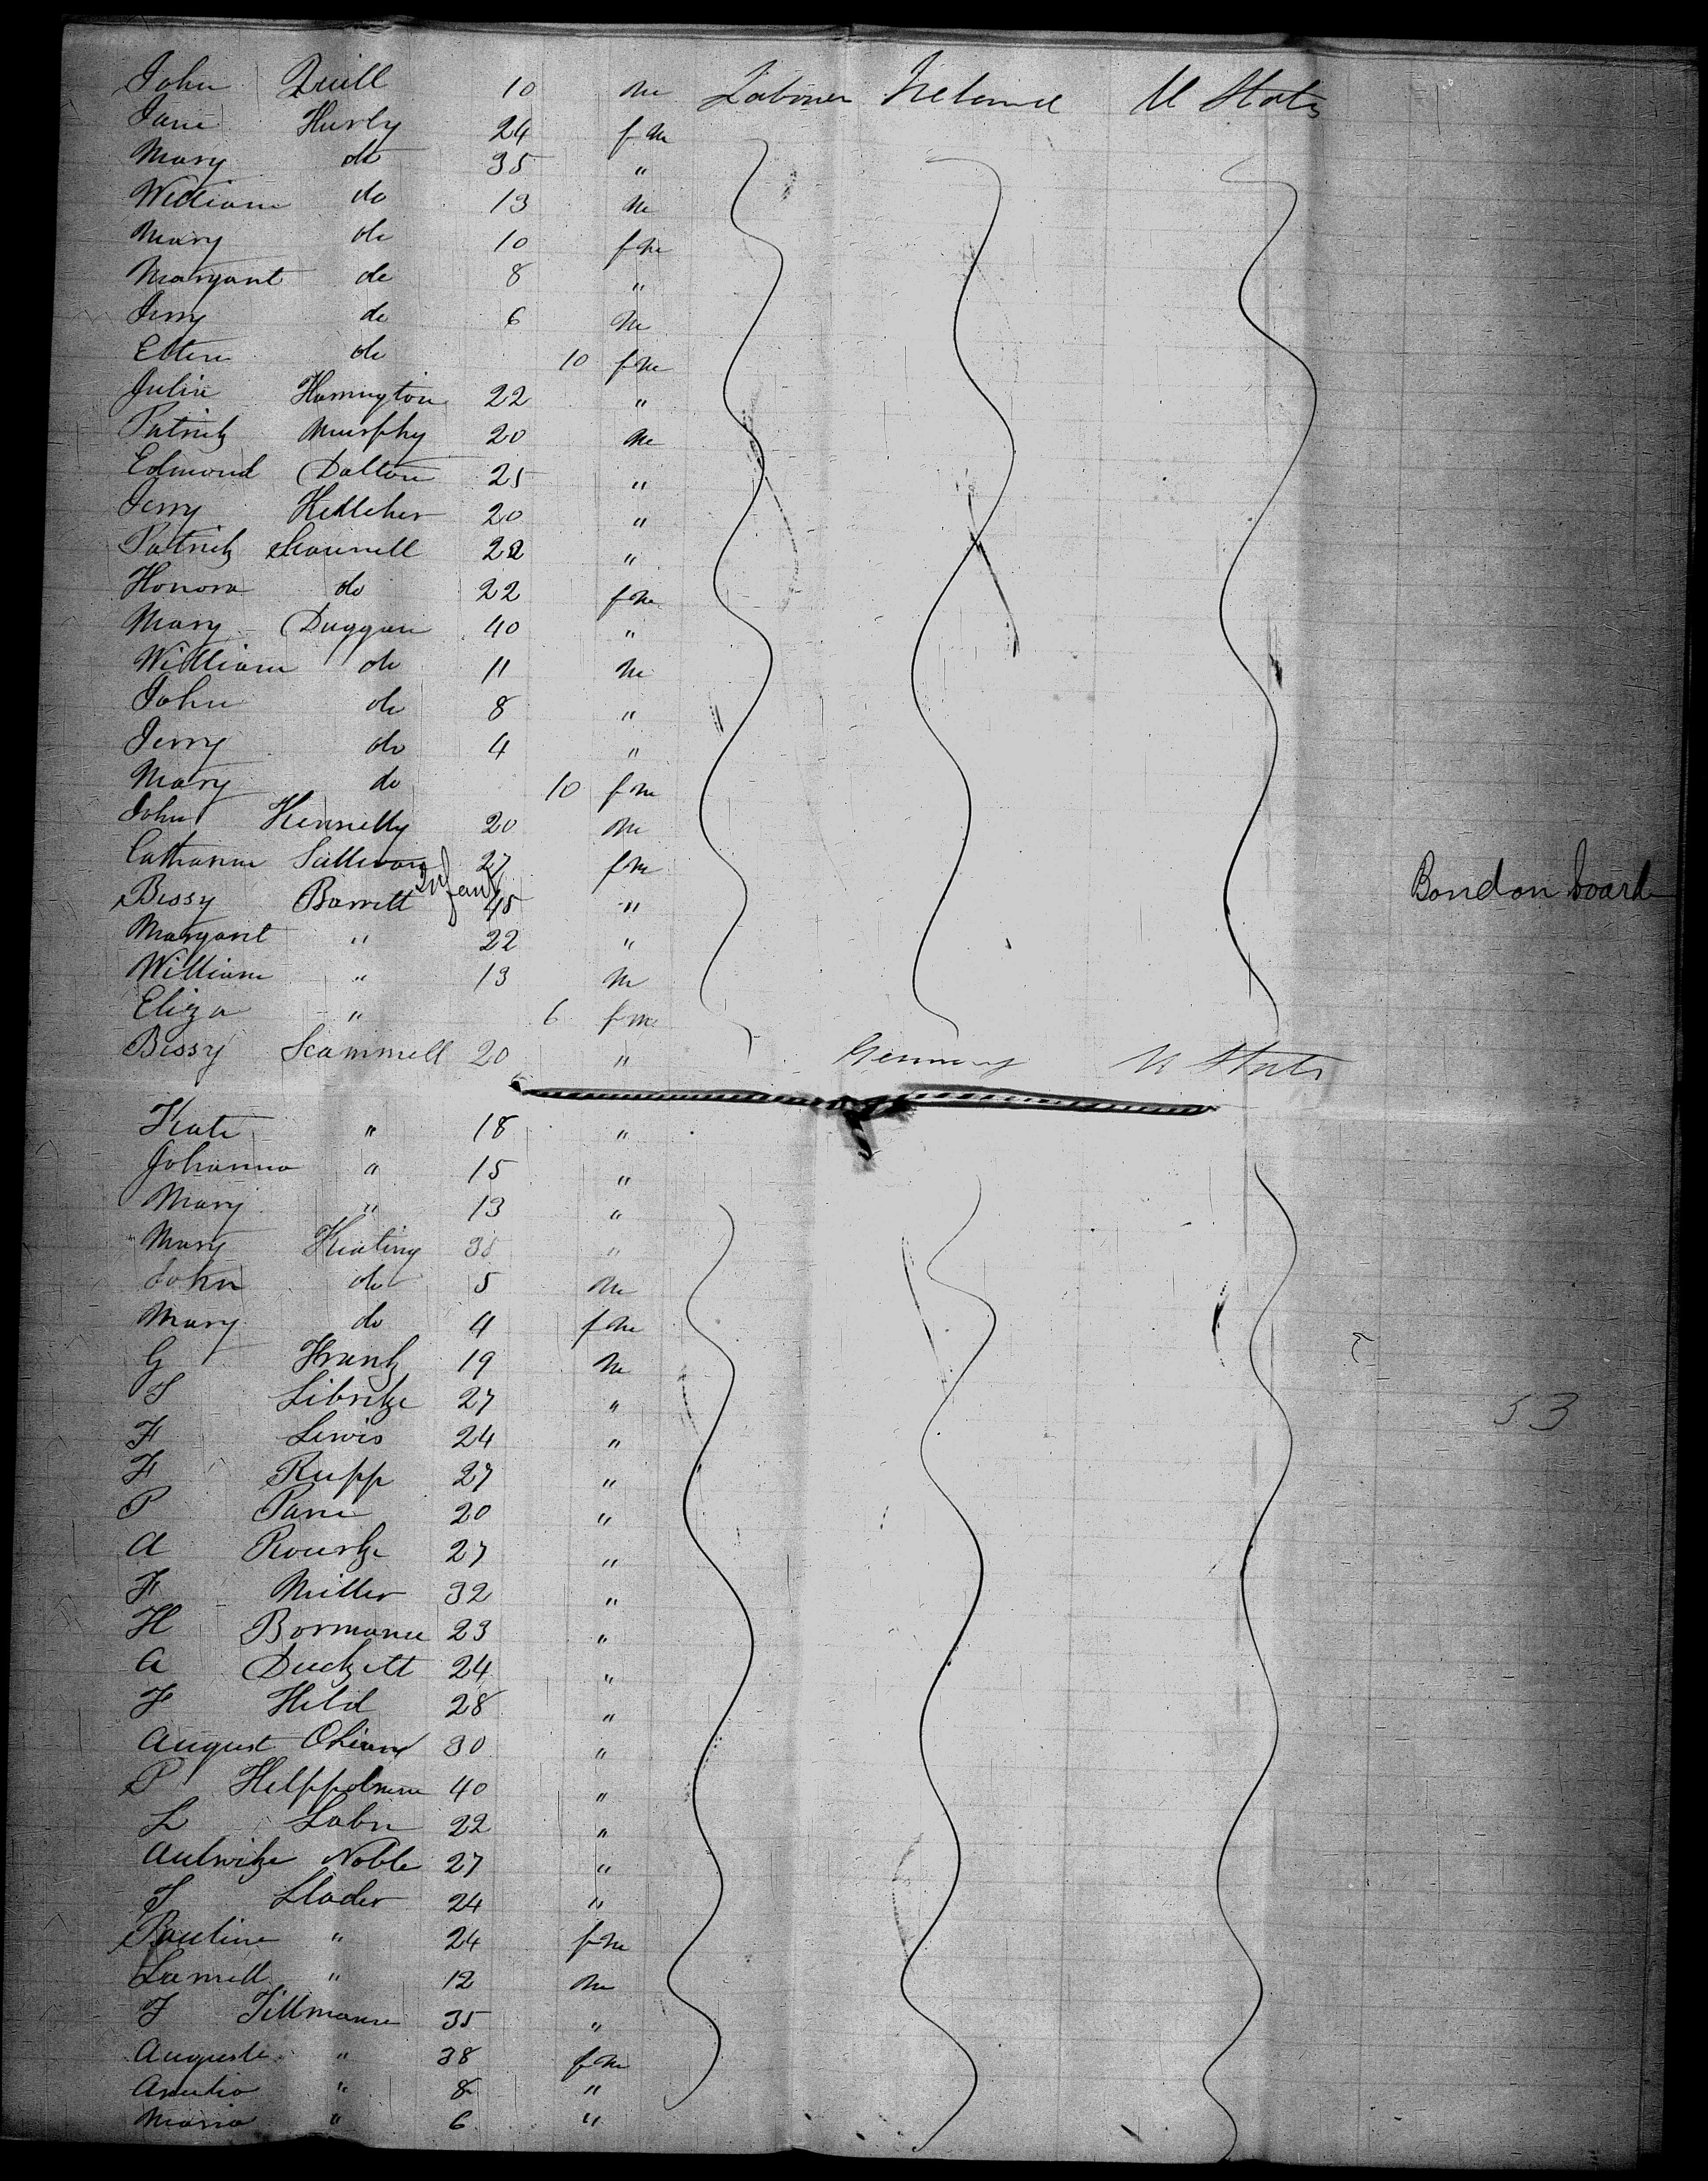 John Quill 10 m Laborer Ireland U States
Jane Hurly 24 fm
Mary do 35 "
William do 13 m
Mary do 10 fm
Margant do 8 "
Jerry do 6 m
Ellen do 10 fm
Julia Harrington 22 "
Patrick Murphy 20 m
Edmond Dalton 25 "
Jerry Kelleher 20 "
Patrick Scannell 22 "
Honora do 22 fm
Mary Duggan 40 "
William do 11 m
John do 8 "
Jerry do 4 "
Mary do 10 fm
John Kennelly 20 m
Catharine Sullivan 27 fm
Infant
Bessy Barrett 45 " Born on board
Margant " 22 "
William " 13 m
Eliza " 6 fm
Bessy Scannell 20 " Germany U States
Kate " 18 "
Johanna " 15 "
Mary " 13 "
Mary Keating 38 "
John do 5 m
Mary do 4 fm
G Krank 19 m
S 27 "
53
F Lewis 24 "
F Rupp 27 "
P 20 "
A Rourke 27 "
F Miller 32 "
H Bormann 23 "
A Duckett 24 "
F Held 28 "
August 30 "
P 40 "
L Labn 22 "
Noble 27 "
S Slader 24 "
Pauline " 24 fm
" 12 m
F Tillmann 35 "
Auguste " 38 fm
" 8 "
Maria " 6 "